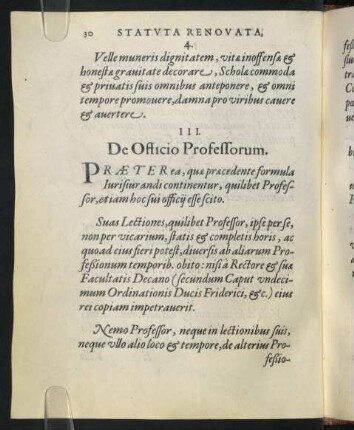 30 STATVTA RENOVATA,
4.
Velle muneris dignitatem, vita inoffensa &
honesta grauitate decorare, Scholæ commoda
& priuatis suis omnibus anteponere, & omni
tempore promouere, damna pro viribus cauere
& auertere.
III.
De Officio Professorum.
PRÆTERea, quæ præcedente formula
Iurisiurandi continentur, quilibet Profes-
sor, etiam hoc sui officij esse scito.
Suas Lectiones, quilibet Professor, ipse per se,
non per vicarium, statis & completis horis, ac
quoad eius fieri potest, diuersis ab aliarum Pro-
fessionum temporib. obito: nisi à Rectore & suæ
Facultatis Decano (secundum Caput vndeci-
mum Ordinationis Ducis Friderici, &c.) eius
rei copiam impetrauerit.
Nemo Professor, neque in lectionibus suis,
neque vllo alio loco & tempore, de alterius Pro-
fessio-